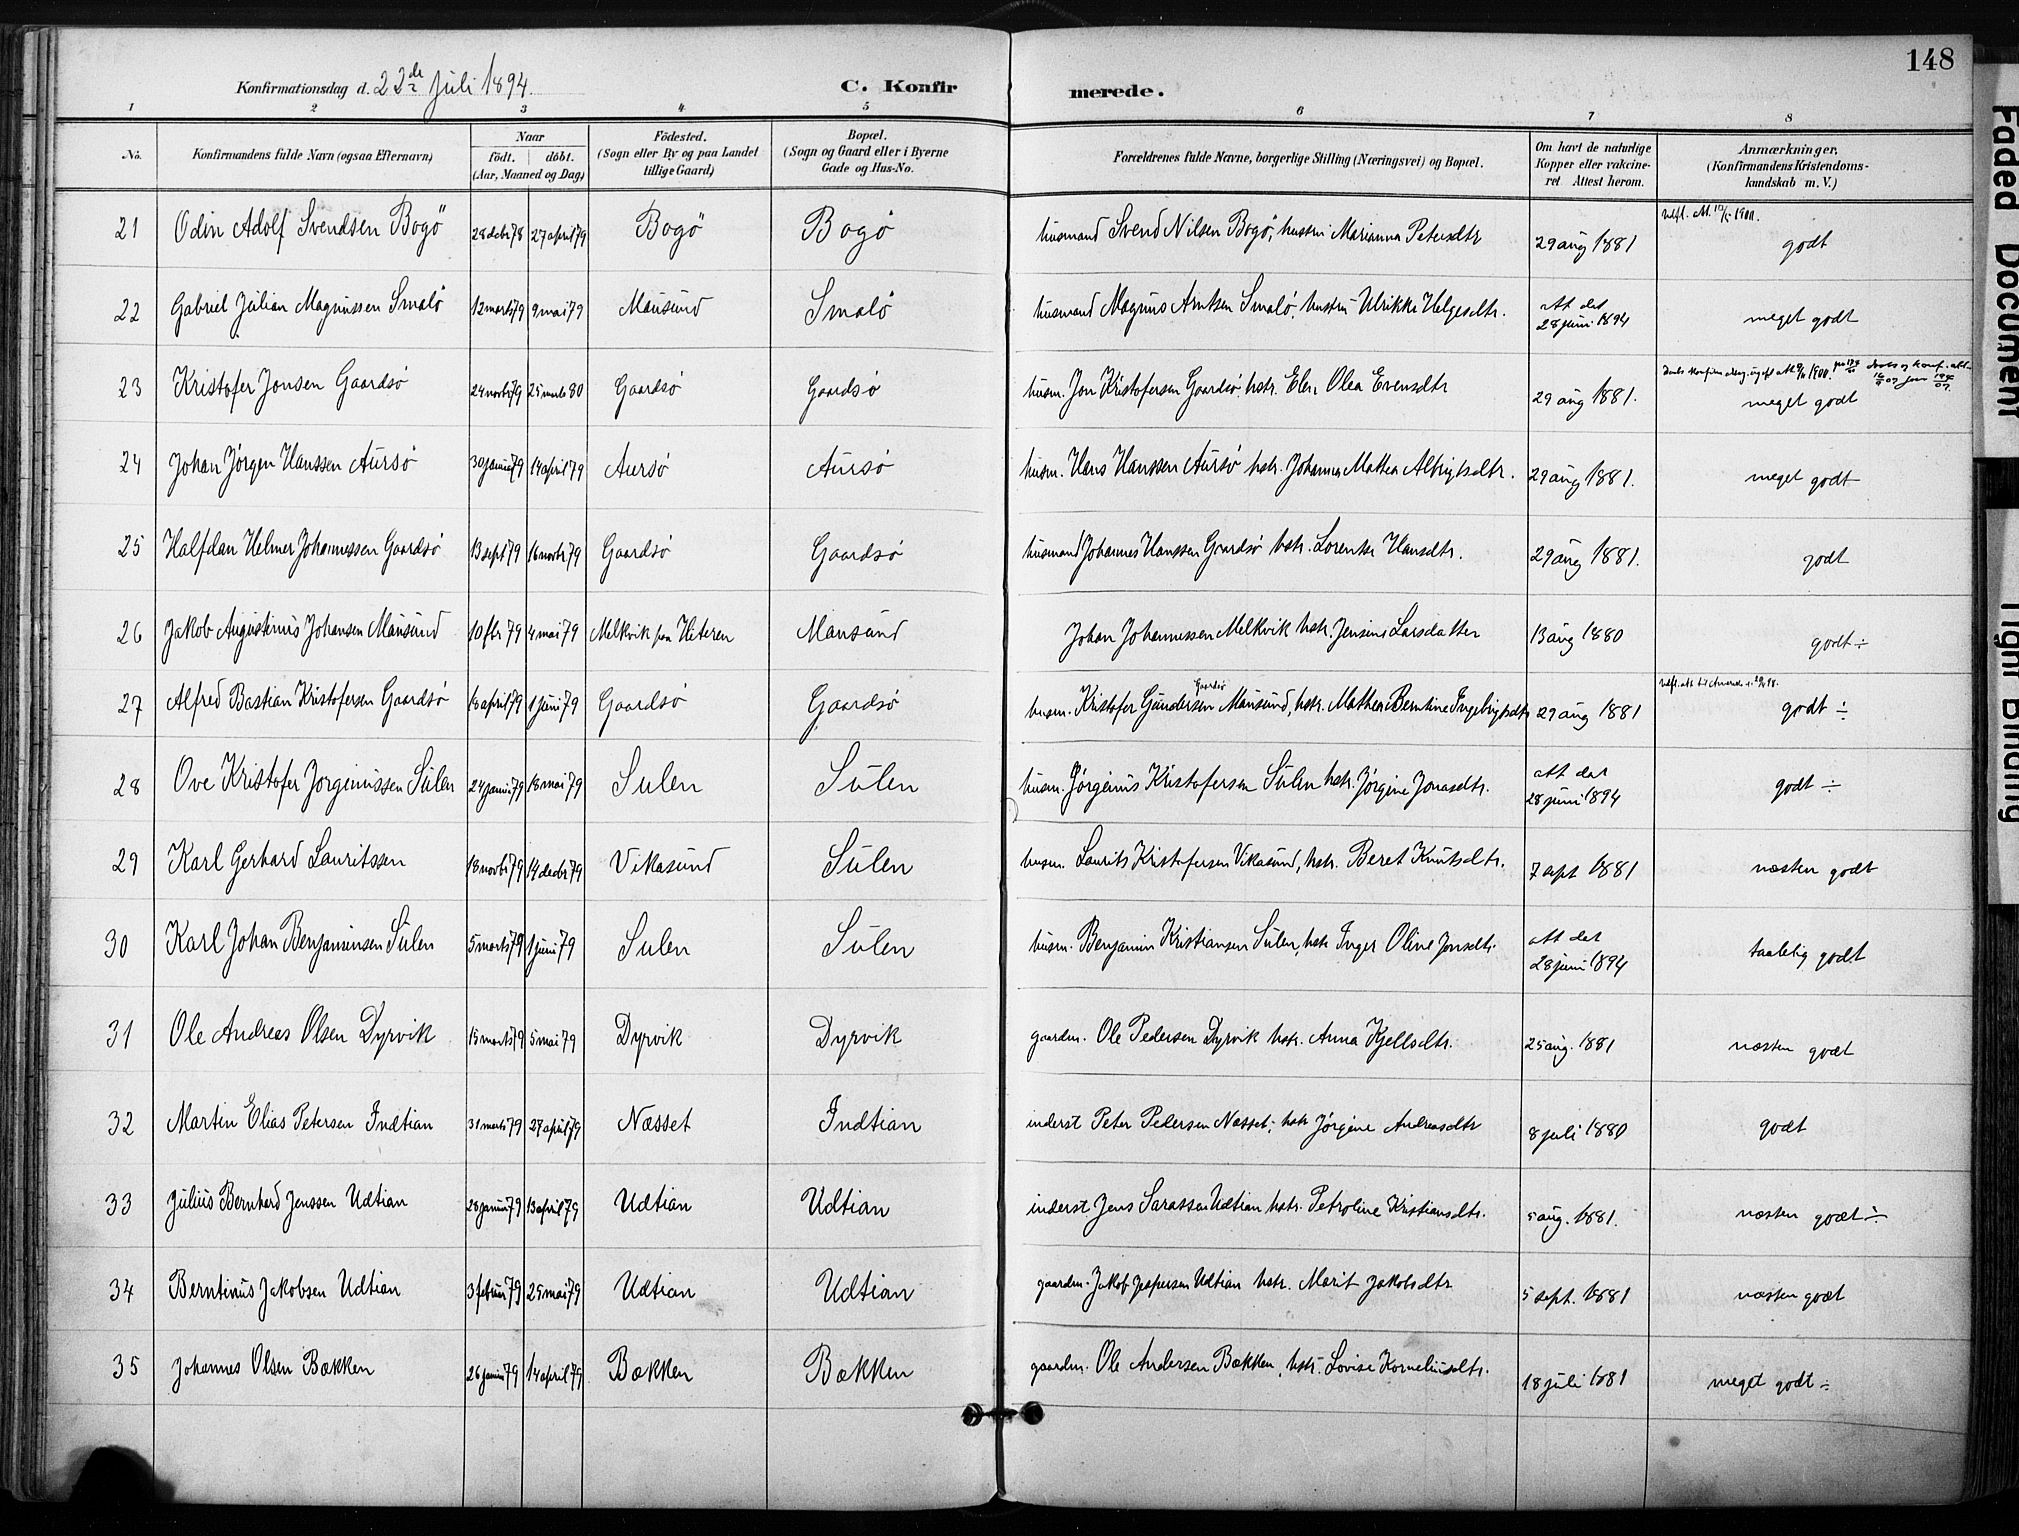 148
Konfirmationsdag d. 22de Juli 1894.
C. Konfirmerede.
1 2 3 4 5 6 7 8
No. | Konfirmandens fulde Navn (ogsaa Efternavn) | Naar født. døbt. (Aar, Maaned og Dag) | Fødested. (Sogn eller By og paa Landet tillige Gaard) | Bopæl. (Sogn og Gaard eller i Byerne Gade og Hus-No. | Forældrenes fulde Navne, borgerlige Stilling (Næringsvei) og Bopæl. | Om havt de naturlige Kopper eller vakcineret Attest herom. | Anmærkninger, (Konfirmandens Kristendomskundskab m. V.)
21 Odin Adolf Svendsen Bogö 28 decbr 78 27 april 79 Bogö Bogö husmand Svend Nilsen Bogö, hustru Marianna Petersdtr 29 aug 1881 godt
22 Gabriel Julian Magnussen Smalö 12 marts 79 9 mai 79 Mausund Smalö husmand Magnus Arntsen Smalö, hustru Ulrikke Helgesdtr. att dat 28 juni 1894 meget godt
23 Kristofer Jonsen Gaardsö 24 novbr 79 25 marts 80 Gaardsö Gaardsö husm. Jon Kristofersen Gaardsö, hstr. Elen Olea Evensdtr 29 aug 1881. meget godt
24 Johan Jörgen Hanssen Aursö 30 januar 79 14 april 79 Aursö Aursö husm. Hans Hanssen Aursö hstr. Johanna Mathea Albrigtsdtr. 29 aug 1881. meget godt
25 Halfdan Helmer Johannessen Gaardsö 13 sept 79 16 novbr 79 Gaardsö Gaardsö husmand Johannes Hanssen Gaardsö hstr. Lorentse Hansdtr. 29 aug 1881. godt
26 Jakob Augustinus Johansen Mausund 10 fbr 79 4 mai 79 Melkvik paa Hiteren Mausund Johan Johannessen Melkvik hstr. Jensine Larsdatter 13 aug 1880 godt ÷
27 Alfred Bastian Kristofersen Gaardsö 18 april 79 1 juni 79 Gaardsö Gaardsö husm. Kristofer Gundersen Mausund, hstr. Mathea Berntine Ingebrigtsdtr 29 aug 1881 godt ÷
Gaardsö
28 Ove Kristofer Jörginussen Sulen 24 januar 79 18 mai 79 Sulen Sulen husm. Jörginus Kristofersen Sulen hstr. Jörgine Jonasdtr. att dat 28 juni 1894 godt ÷
29 Karl Gerhard Lauritssen 18 novbr 79 14 decbr 79 Vikasund Sulen husm. Laurits Kristofersen Vikasund, hstr. Beret Knutsdtr. 7 sept 1881 næsten godt
30 Karl Johan Benjaminsen Sulen 5 marts 79 1 juni 79 Sulen Sulen husm. Benjamin Kristiansen Sulen, hstr Inger Oline Jonsdtr. att dat 28 juni 1894 taalelig godt
31 Ole Andreas Olsen Dyrvik 15 marts 79 5 mai 79 Dyrvik Dyrvik gaardm. Ole Pedersen Dyrvik hstr. Anna Kjellsdtr. 25 aug. 1881 næsten godt
32 Martin Elias Petersen Indtian 31 marts 79 27 april 79 Næsset Indtian inderst Peter Pedersen Næsset, hstr Jörgine Andreasdtr 8 juli 1880 godt
33 Julius Bernhard Jenssen Udtian 28 januar 79 13 april 79 Udtian Udtian inderst Jens Sarassen Udtian hstr. Petroline Kristiansdtr. 5 aug. 1881. næsten godt ÷
34 Berntinus Jakobsen Udtian 3 februar 79 25 mai 79 Udtian Udtian gaardm. Jakob Jespersen Udtian hstr. Marit Jakobsdtr 5 sept. 1881 næsten godt
35 Johannes Olsen Bækken 26 januar 79 14 april 79 Bækken Bækken gaardm. Ole Andersen Bækken, hstr. Lovise Korneliusdtr. 18 juli 1881 meget godt ÷
Faded Document
Tight Binding